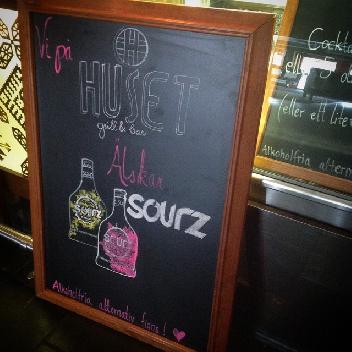 Vi på
HUSET
grill & bar
Älskar
sourz
sourz
sourz
Alkoholfria alternativ finns!
Cockta
eller 5 
(eller ett lite
Alkoholfria altern